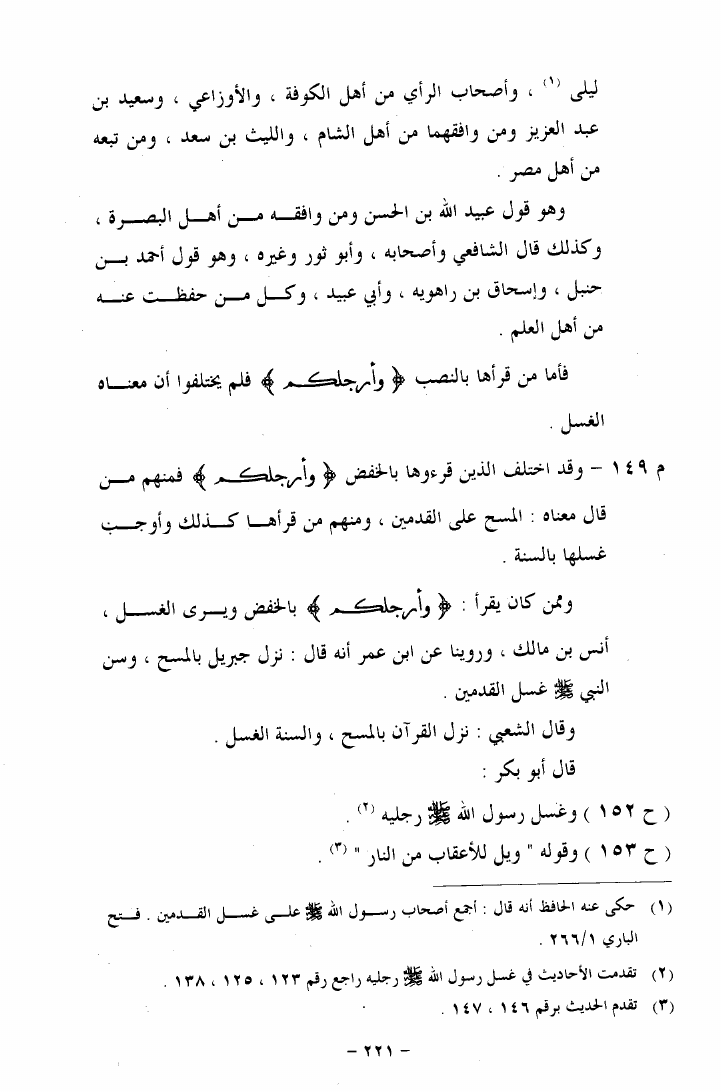 ليلى (١) ، وأصحاب الرأي من أهل الكوفة ، والأوزاعي ، وسعيد بن
عبد العزيز ومن وافقهما من أهل الشام ، والليث بن سعد ، ومن تبعه
من أهل مصر .
وهو قول عبيد الله بن الحسن ومن وافقـــه مـــن أهـــل البصـــرة ،
وكذلك قال الشافعي وأصحابه ، وأبو ثور وغيره ، وهو قول أحمد بـــن
حنبل ، وإسحاق بن راهويه ، وأبي عبيد ، وكـــل مـــن حفظـــت عنـــه
من أهل العلم .
فأما من قرأها بالنصب ﴿ وأرجلكم ﴾ فلم يختلفوا أن معنـــاه
الغسل .
م ١٤٩ – وقد اختلف الذين قرءوها بالخفض ﴿ وأرجلكم ﴾ فمنهم مـــن
قال معناه : المسح على القدمين ، ومنهم من قرأهـــا كـــذلك وأوجـــب
غسلها بالسنة .
وممن كان يقرأ : ﴿ وأرجلكم ﴾ بالخفض ويـــرى الغســـل ،
أنس بن مالك ، وروينا عن ابن عمر أنه قال : نزل جبريل بالمسح ، وسن
النبي ﷺ غسل القدمين .
وقال الشعبي : نزل القرآن بالمسح ، والسنة الغسل .
قال أبو بكر :
( ح ١٥٢ ) وغسل رسول الله ﷺ رجليه (٢) .
( ح ١٥٣ ) وقوله " ويل للأعقاب من النار " (٣) .
(١) حكى عنه الحافظ أنه قال : أجمع أصحاب رســـول الله ﷺ علـــى غســـل القـــدمين . فـــتح
الباري ٢٦٦/١ .
(٢) تقدمت الأحاديث في غسل رسول الله ﷺ رجليه راجع رقم ١٢٣ ، ١٢٥ ، ١٣٨ .
(٣) تقدم الحديث برقم ١٤٦ ، ١٤٧ .
– ٢٢١ –